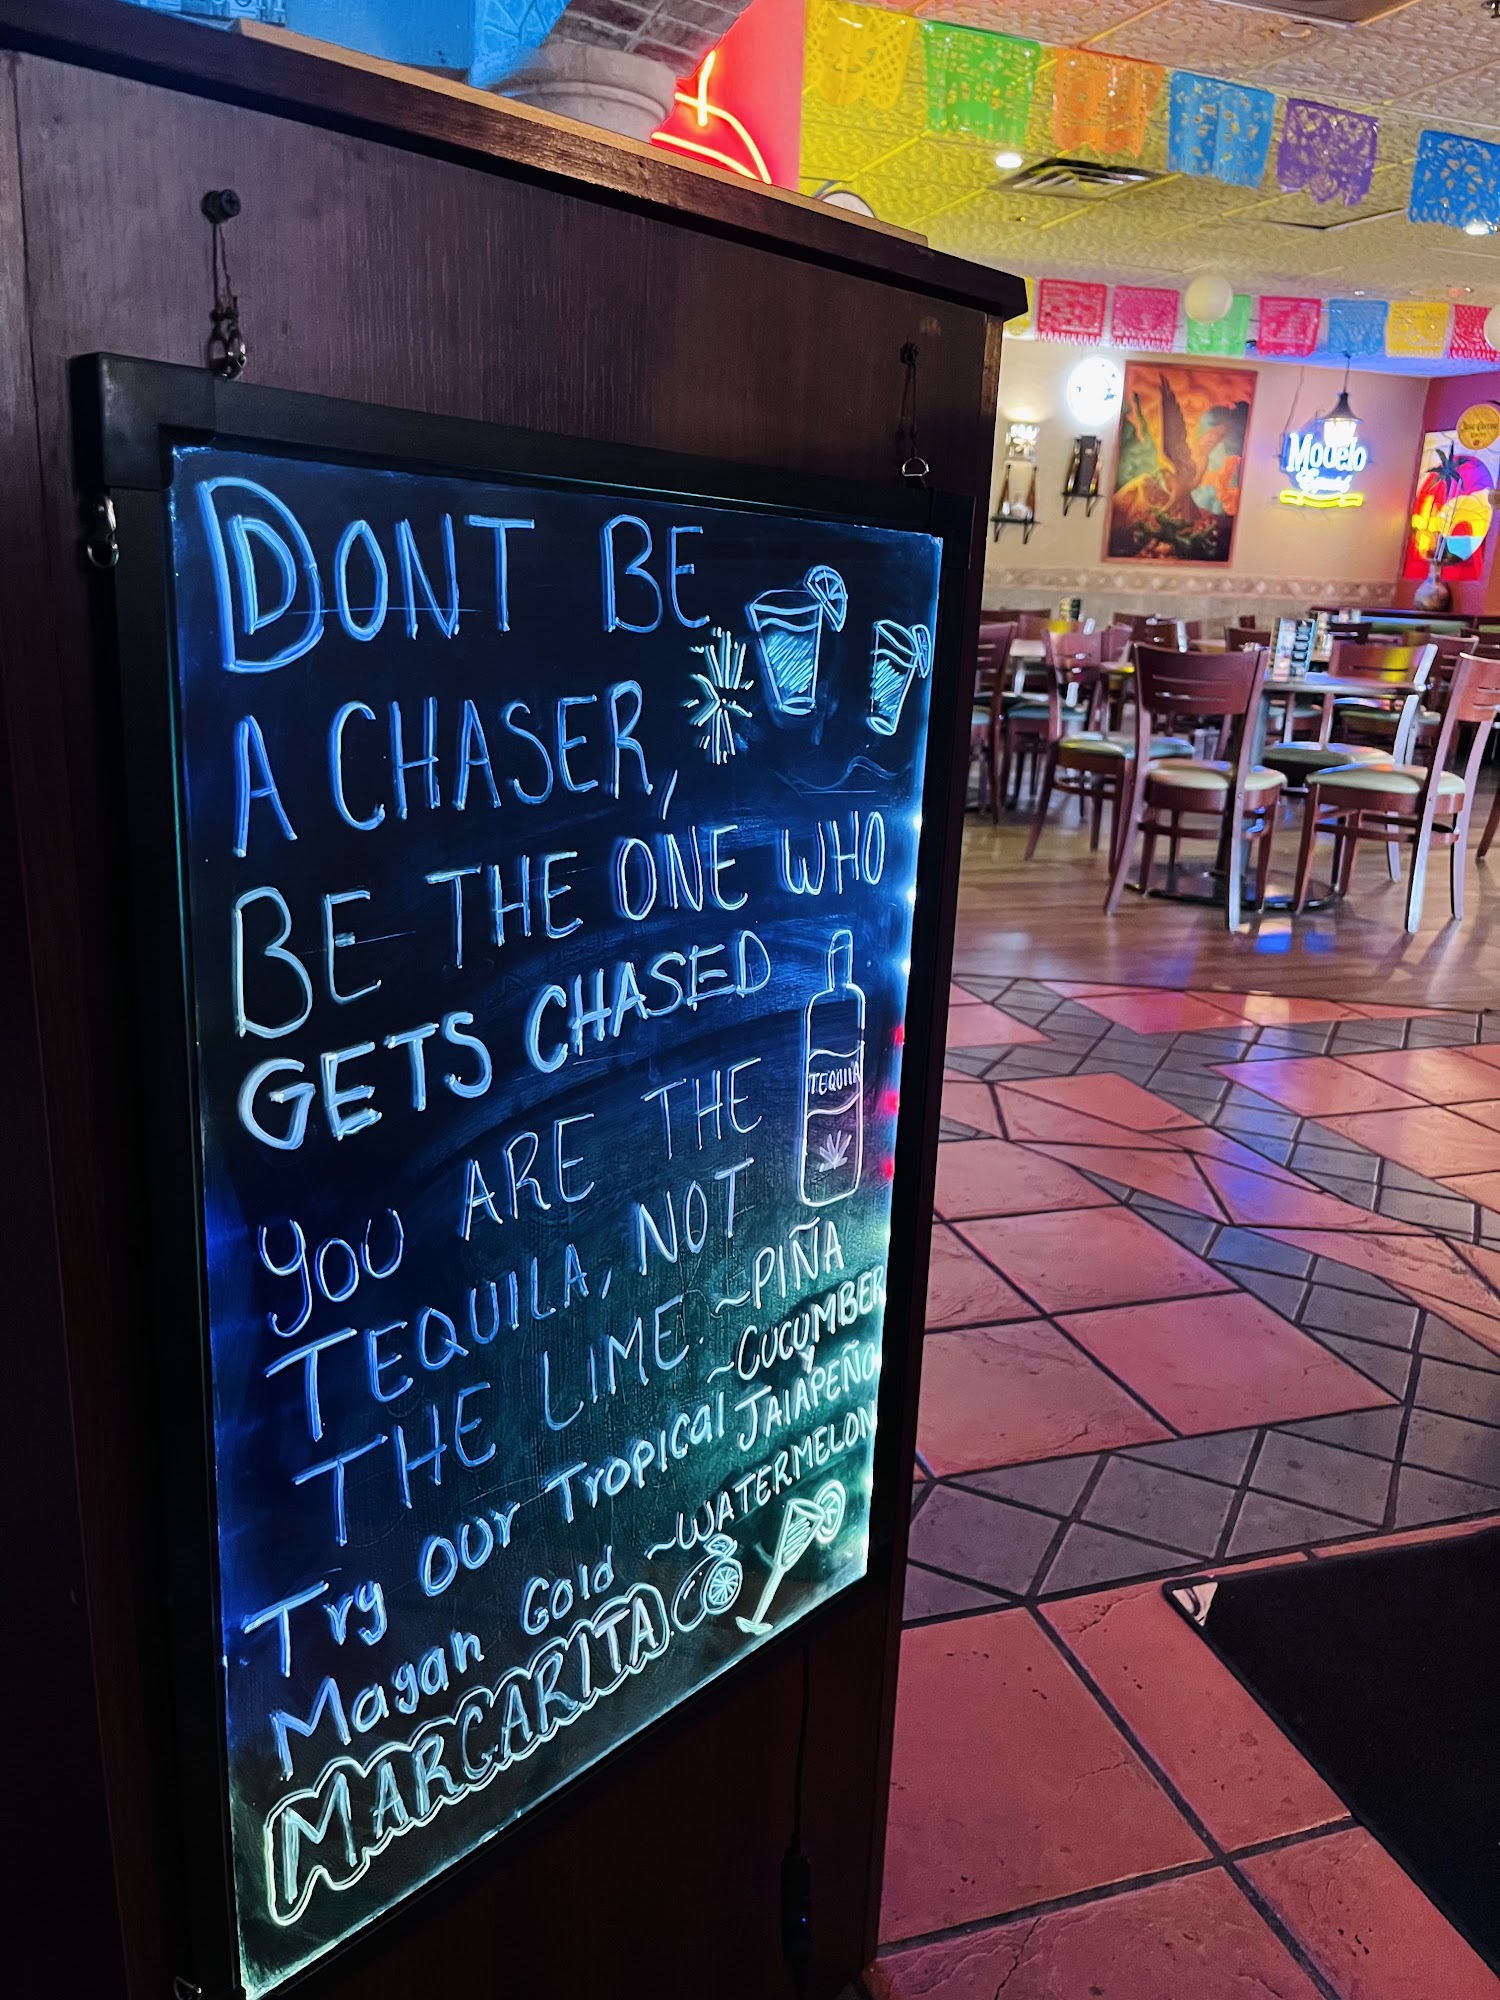 DONT BE
A CHASER,
BE THE ONE WHO
GETS CHASED
YOU ARE THE
TEQUILA, NOT
THE LIME.
TEQUILA
Try our Tropical
Mayan Gold
MARGARITA
~PIÑA
~CUCUMBER
Y
JALAPEÑO
~WATERMELON
Modelo
Especial
Jose Cuervo